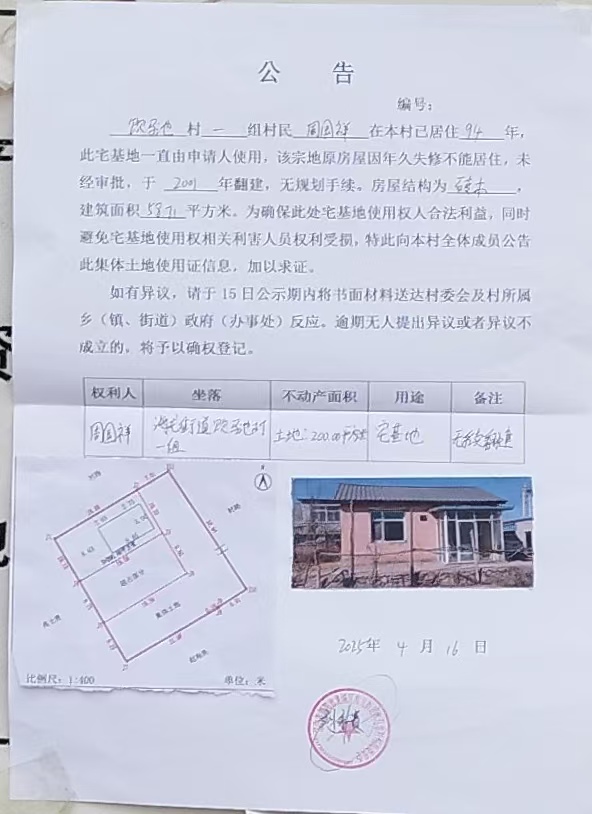 公 告
编号:
村 一 组村民 周国祥 在本村已居住 94 年,
此宅基地一直由申请人使用,该宗地原房屋因年久失修不能居住,未
经审批,于 2001 年翻建,无规划手续。房屋结构为 ,
建筑面积 平方米。为确保此处宅基地使用权人合法利益,同时
避免宅基地使用权相关利害人员权利受损,特此向本村全体成员公告
此集体土地使用证信息,加以求证。
如有异议,请于 15 日公示期内将书面材料送达村委会及村所属
乡(镇、街道)政府(办事处)反应。逾期无人提出异议或者异议不
成立的,将予以确权登记。
权利人 坐落 不动产面积 用途 备注
周国祥 街道 村 土地:200.00平方米 宅基地
一组
超占部分
集体土地
比例尺: 1:400 单位: 米
2025年 4 月 16 日